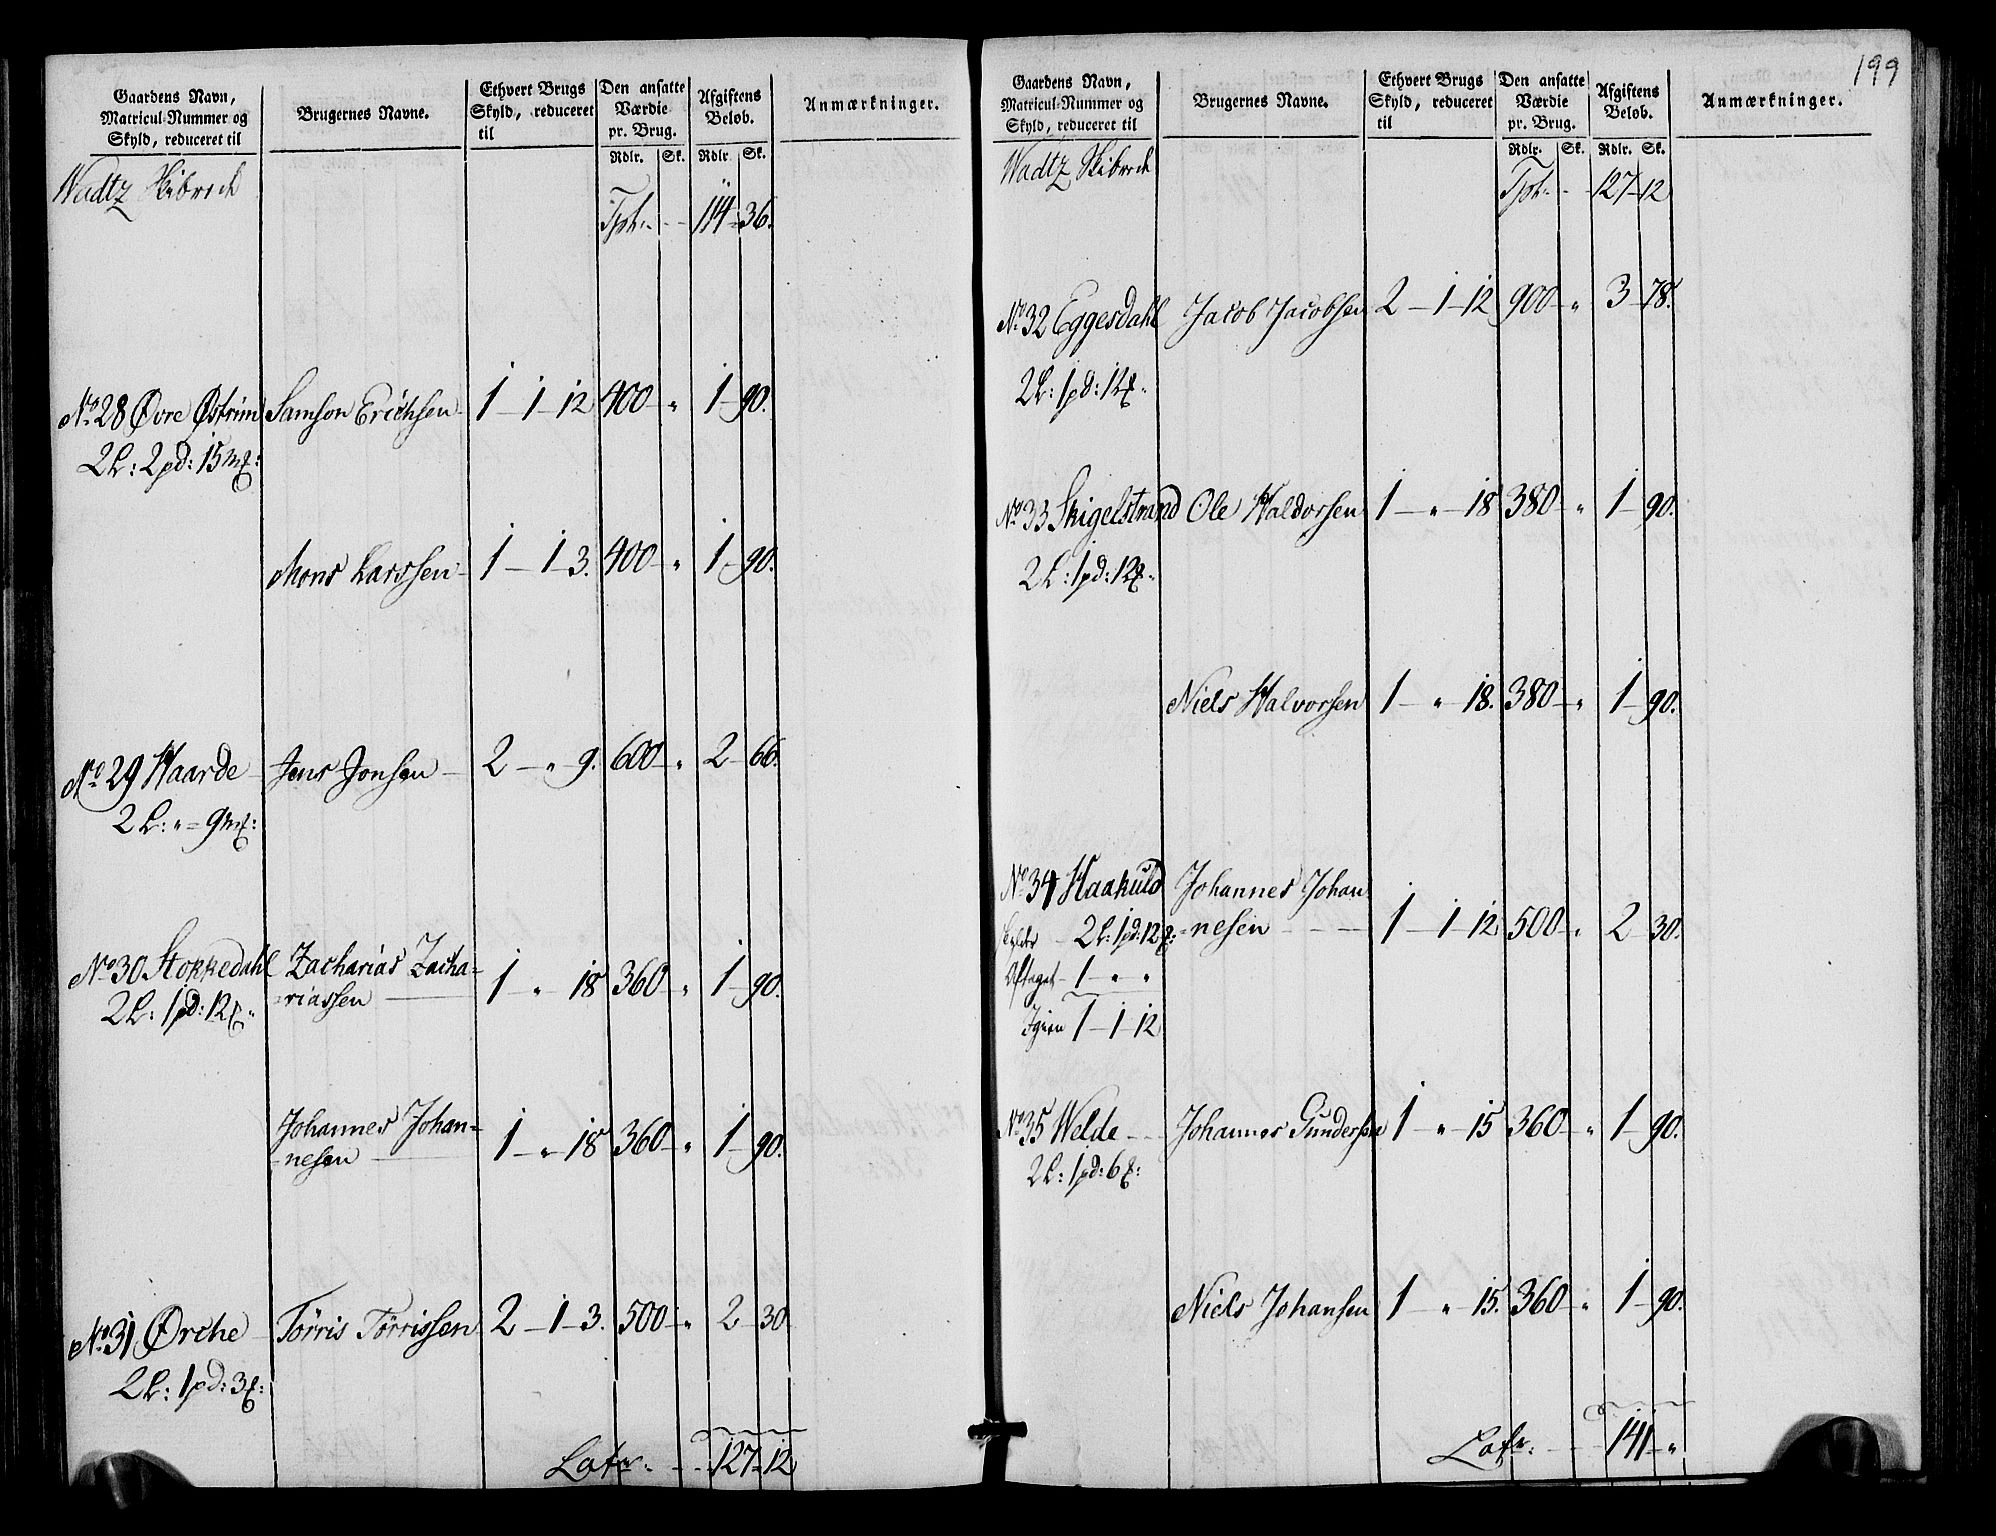 Gaardens Navn,
Matricul-Nummer og
Skyld, reduceret til
Brugernes Navne.
Ethvert Brugs
Skyld, reduceret
til
Den ansatte
Værdie
pr. Brug.
Rdlr. Sk.
Afgiftens
Beløb.
Rdlr. Sk.
Anmærkninger.
Wadtz Skibrede
Tpt. - - 114 = 36.
No 28 Øvre Østrim Samson Erichsen 1 - 1 - 12 400 - „ 1 - 90.
2L: 2pd: 15mk:
Mons Larssen 1 - 1 - 3. 400 - „ 1 - 90.
No 29 Haarde Jens Jonsen 2 - „ 9. 600 - „ 2 - 66.
2L: „ = 9mk:
No 30 Stokkedahl Zacharias Zacha=
=riassen 1 „ 18 360 - „ 1 - 90.
2L: 1pd: 12
Johannes Johan=
=nesen 1 - „ - 18 360 - „ 1 - 90.
No 31 Ørche Törris Törrissen 2 - 1 - 3. 500 - „ 2 - 30.
2L: 1pd: 3
Latr. - - 127 = 12
199
Gaardens Navn,
Matricul-Nummer og
Skyld, reduceret til
Brugernes Navne.
Ethvert Brugs
Skyld, reduceret
til
Den ansatte
Værdie
pr. Brug.
Rdlr. Sk.
Afgiftens
Beløb.
Rdlr. Sk.
Anmærkninger.
Wadtz Skibrede
Tpt. - - 127 - 12
No 32 Eggesdahl Jacob Jacobsen 2 - 1 - 12 900 - „ 3 - 78.
2L: 1pd: 12
No 33 Skigelstrand Ole Haldorsen 1 - „ - 18 380 - „ 1 - 90.
2L: 1pd: 12
Niels Halvorsen 1 - „ 18. 380 - „ 1 - 90.
No 34 Haakuld Johannes Johan
=nesen - - - 1 - 1 - 12. 500 - „ 2 - 30.
Skylder - 2L: 1pd: 12
Aftaget - 1 - „ „
Igien 1 - 1 - 12
No 35 Welde - - Johannes Gundersen 1 „ - 15 360 - „ 1 - 90.
2L: 1pd: 6
Niels Johansen 1 „ - 15. 360 - „ 1 - 90.
Latr. - - 141 - „